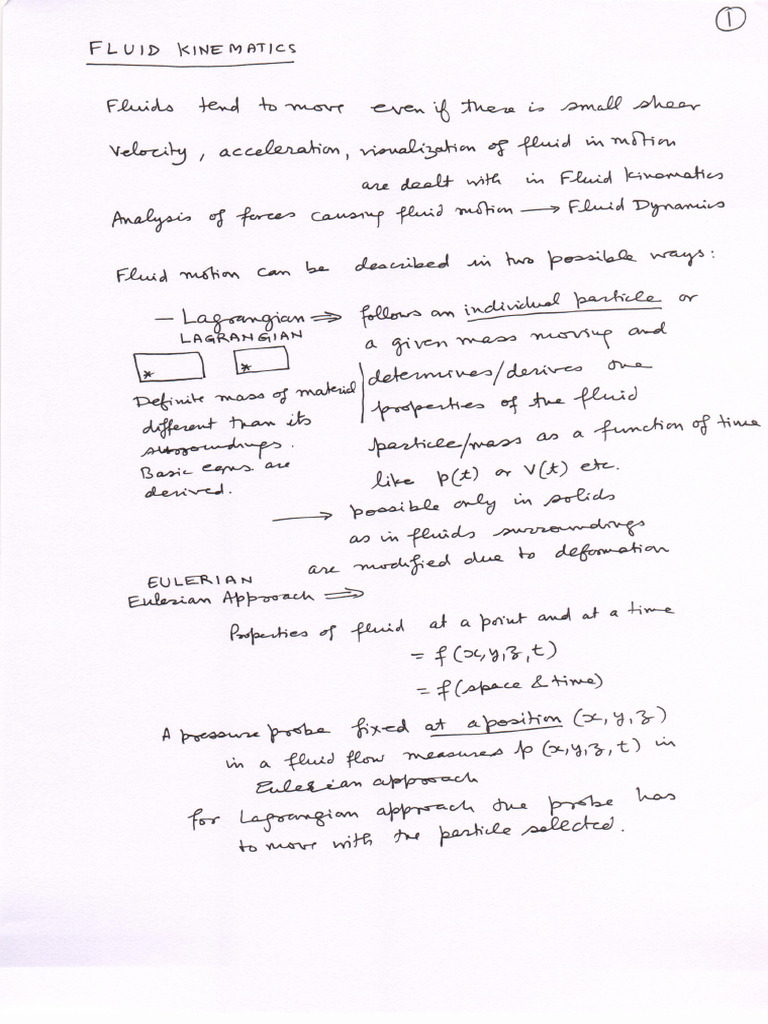 1
FLUID KINEMATICS
Fluids tend to move even if there is small shear
Velocity, acceleration, visualization of fluid in motion
are dealt with in Fluid Kinematics
Analysis of forces causing fluid motion → Fluid Dynamics
Fluid motion can be described in two possible ways:
– Lagrangian ⇒ follows an individual particle or
LAGRANGIAN
a given mass moving and
determines/derives one
properties of the fluid
particle/mass as a function of time
like p(t) or V(t) etc.
* *
Definite mass of material
different than its
surroundings.
Basic eqns are
derived.
→ possible only in solids
as in fluids surroundings
are modified due to deformation
EULERIAN
Eulerian Approach ⇒
Properties of fluid at a point and at a time
= f(x,y,z,t)
= f(space & time)
A pressure probe fixed at a position (x,y,z)
in a fluid flow measures p(x,y,z,t) in
Eulerian approach
for Lagrangian approach the probe has
to move with the particle selected.